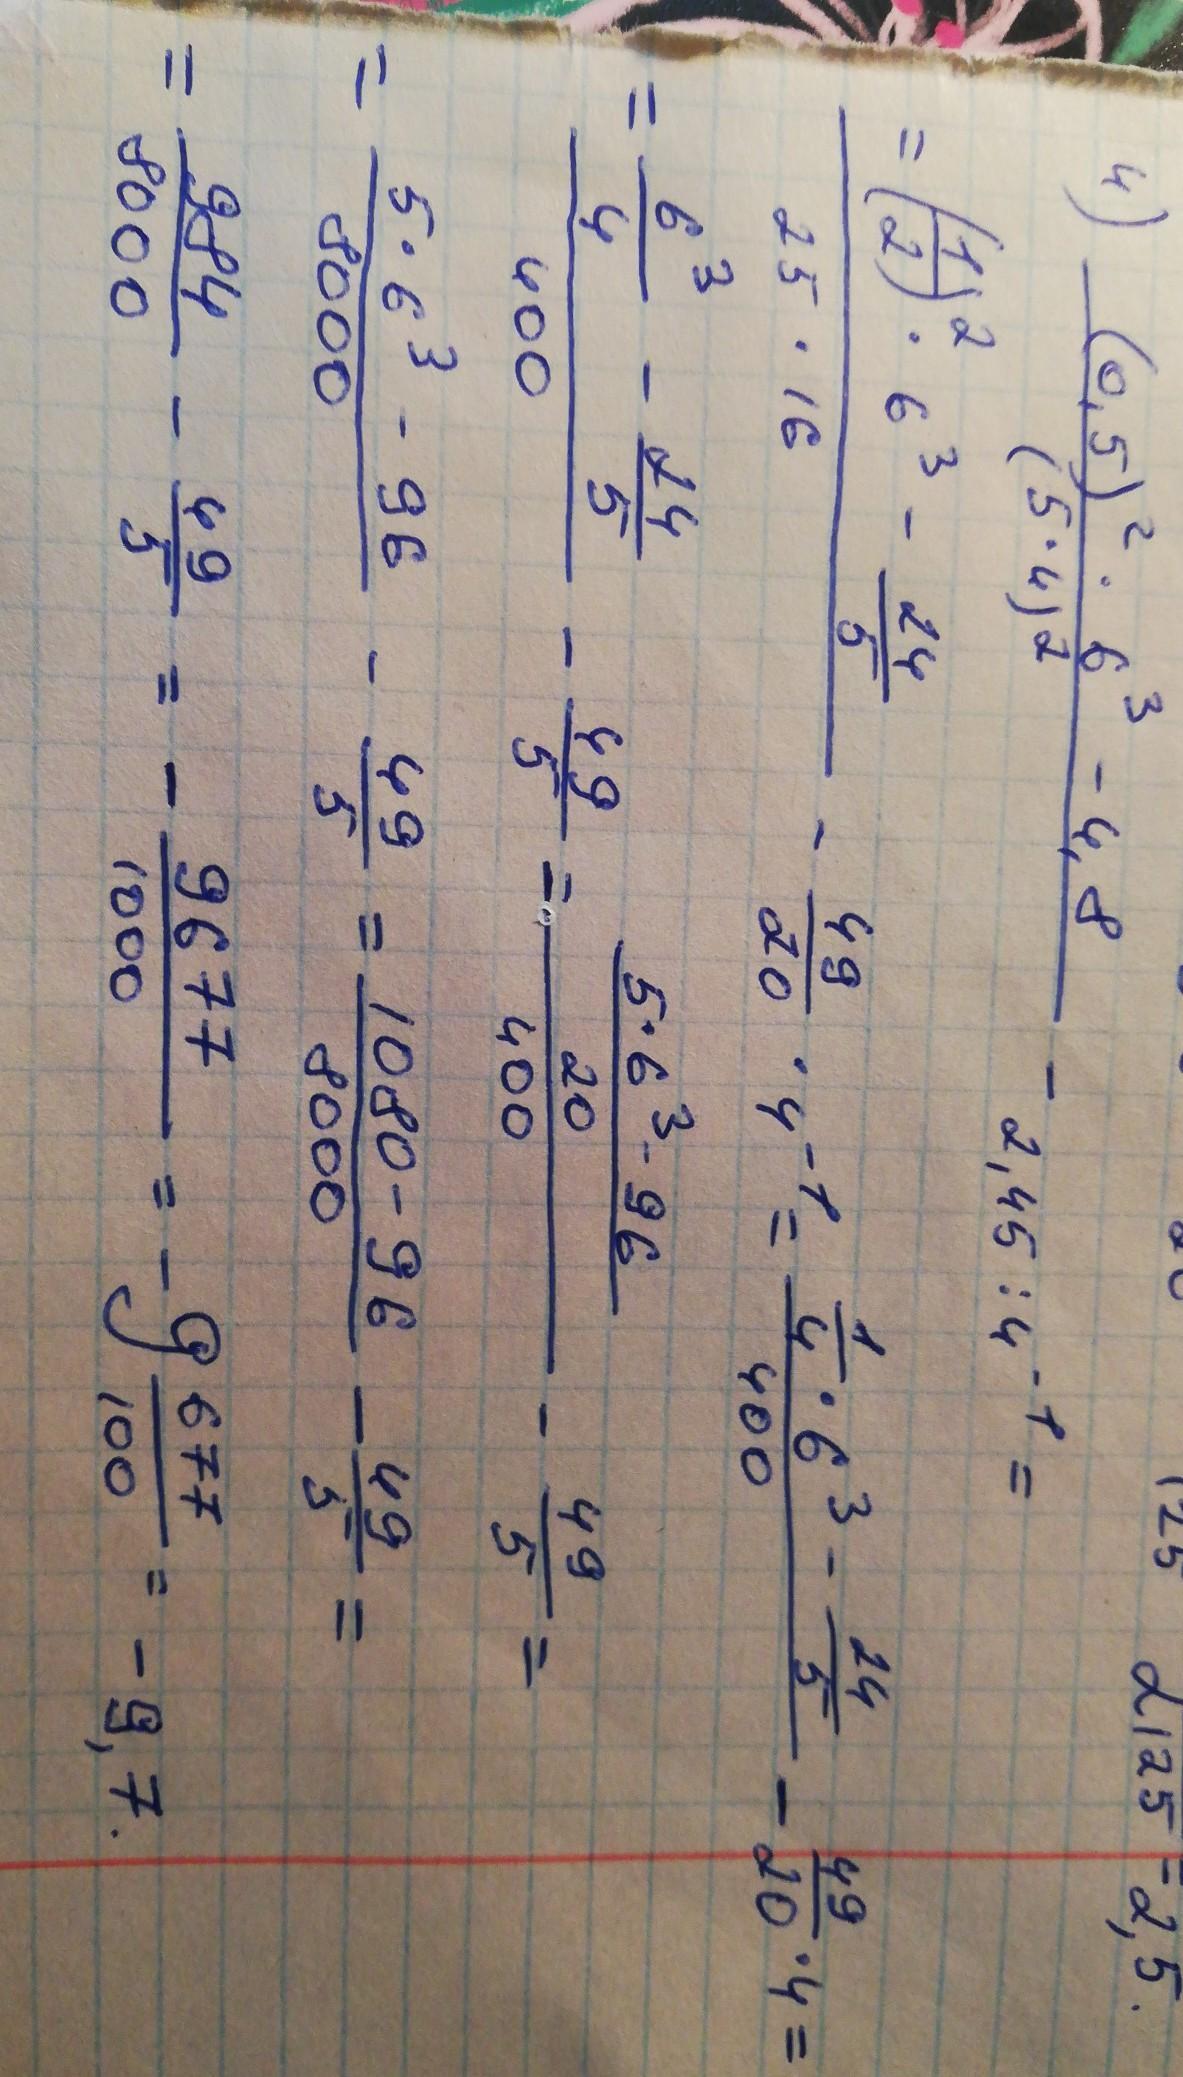 20 125 2125 = 2,5.
4) (0,5)² · 6³ - 4,8 / (5·4)² - 2,45 : 4⁻¹ =
= (1/2)² · 6³ - 24/5 / 25 · 16 - 49/20 · 4⁻¹ = 1/4 · 6³ - 24/5 / 400 - 49/20 · 4 =
= 6³/4 - 24/5 / 400 - 49/5 = 5·6³ - 96 / 20 / 400 - 49/5 =
= 5·6³ - 96 / 8000 - 49/5 = 1080 - 96 / 8000 - 49/5 =
= 984/8000 - 49/5 = - 9677/1000 = - 9 677/100 = - 9,7.